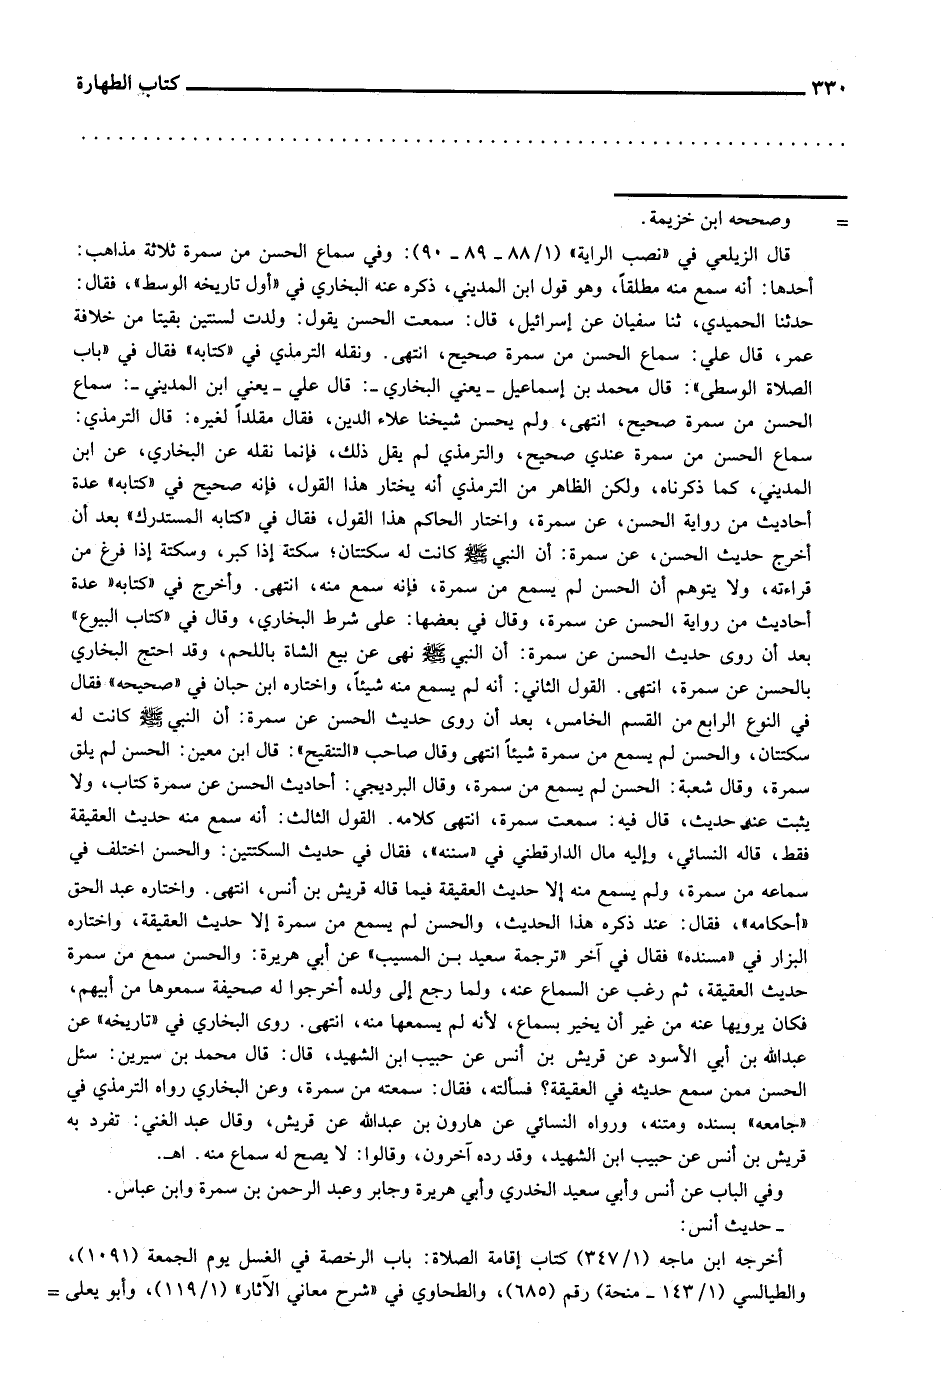 ٣٣٠ كتاب الطهارة
= وصححه ابن خزيمة.
قال الزيلعي في «نصب الراية» (٨٨/١ ـ ٨٩ ـ ٩٠): وفي سماع الحسن من سمرة ثلاثة مذاهب:
أحدها: أنه سمع منه مطلقاً، وهو قول ابن المديني، ذكره عنه البخاري في «أول تاريخه الوسط»، فقال:
حدثنا الحميدي، ثنا سفيان عن إسرائيل، قال: سمعت الحسن يقول: ولدت لسنتين بقيتا من خلافة
عمر، قال علي: سماع الحسن من سمرة صحيح، انتهى. ونقله الترمذي في «كتابه» فقال في «باب
الصلاة الوسطى»: قال محمد بن إسماعيل ـ يعني البخاري ـ: قال علي ـ يعني ابن المديني ـ: سماع
الحسن من سمرة صحيح، انتهى، ولم يحسن شيخنا علاء الدين، فقال مقلداً لغيره: قال الترمذي:
سماع الحسن من سمرة عندي صحيح، والترمذي لم يقل ذلك، فإنما نقله عن البخاري، عن ابن
المديني، كما ذكرناه، ولكن الظاهر من الترمذي أنه يختار هذا القول، فإنه صحيح في «كتابه» عدة
أحاديث من رواية الحسن، عن سمرة، واختار الحاكم هذا القول، فقال في «كتابه المستدرك» بعد أن
أخرج حديث الحسن، عن سمرة: أن النبي ﷺ كانت له سكتتان؛ سكتة إذا كبر، وسكتة إذا فرغ من
قراءته، ولا يتوهم أن الحسن لم يسمع من سمرة، فإنه سمع منه، انتهى. وأخرج في «كتابه» عدة
أحاديث من رواية الحسن عن سمرة، وقال في بعضها: على شرط البخاري، وقال في «كتاب البيوع»
بعد أن روى حديث الحسن عن سمرة: أن النبي ﷺ نهى عن بيع الشاة باللحم، وقد احتج البخاري
بالحسن عن سمرة، انتهى. القول الثاني: أنه لم يسمع منه شيئاً، واختاره ابن حبان في «صحيحه» فقال
في النوع الرابع من القسم الخامس، بعد أن روى حديث الحسن عن سمرة: أن النبي ﷺ كانت له
سكتتان، والحسن لم يسمع من سمرة شيئاً انتهى وقال صاحب «التنقيح»: قال ابن معين: الحسن لم يلق
سمرة، وقال شعبة: الحسن لم يسمع من سمرة، وقال البرديجي: أحاديث الحسن عن سمرة كتاب، ولا
يثبت عنه حديث، قال فيه: سمعت سمرة، انتهى كلامه. القول الثالث: أنه سمع منه حديث العقيقة
فقط، قاله النسائي، وإليه مال الدارقطني في «سننه»، فقال في حديث السكتتين: والحسن اختلف في
سماعه من سمرة، ولم يسمع منه إلا حديث العقيقة فيما قاله قريش بن أنس، انتهى. واختاره عبد الحق
«أحكامه»، فقال: عند ذكره هذا الحديث، والحسن لم يسمع من سمرة إلا حديث العقيقة، واختاره
البزار في «مسنده» فقال في آخر «ترجمة سعيد بن المسيب» عن أبي هريرة: والحسن سمع من سمرة
حديث العقيقة، ثم رغب عن السماع عنه، ولما رجع إلى ولده أخرجوا له صحيفة سمعوها من أبيهم،
فكان يرويها عنه من غير أن يخير بسماع، لأنه لم يسمعها منه، انتهى. روى البخاري في «تاريخه» عن
عبدالله بن أبي الأسود عن قريش بن أنس عن حبيب ابن الشهيد، قال: قال محمد بن سيرين: سئل
الحسن ممن سمع حديثه في العقيقة؟ فسألته، فقال: سمعته من سمرة، وعن البخاري رواه الترمذي في
«جامعه» بسنده ومتنه، ورواه النسائي عن هارون بن عبدالله عن قريش، وقال عبد الغني: تفرد به
قريش بن أنس عن حبيب ابن الشهيد، وقد رده آخرون، وقالوا: لا يصح له سماع منه. اهـ.
وفي الباب عن أنس وأبي سعيد الخدري وأبي هريرة وجابر وعبد الرحمن بن سمرة وابن عباس.
ـ حديث أنس:
أخرجه ابن ماجه (٣٤٧/١) كتاب إقامة الصلاة: باب الرخصة في الغسل يوم الجمعة (١٠٩١)،
والطيالسي (١٤٣/١ ـ منحة) رقم (٦٨٥)، والطحاوي في «شرح معاني الآثار» (١١٩/١)، وأبو يعلى =